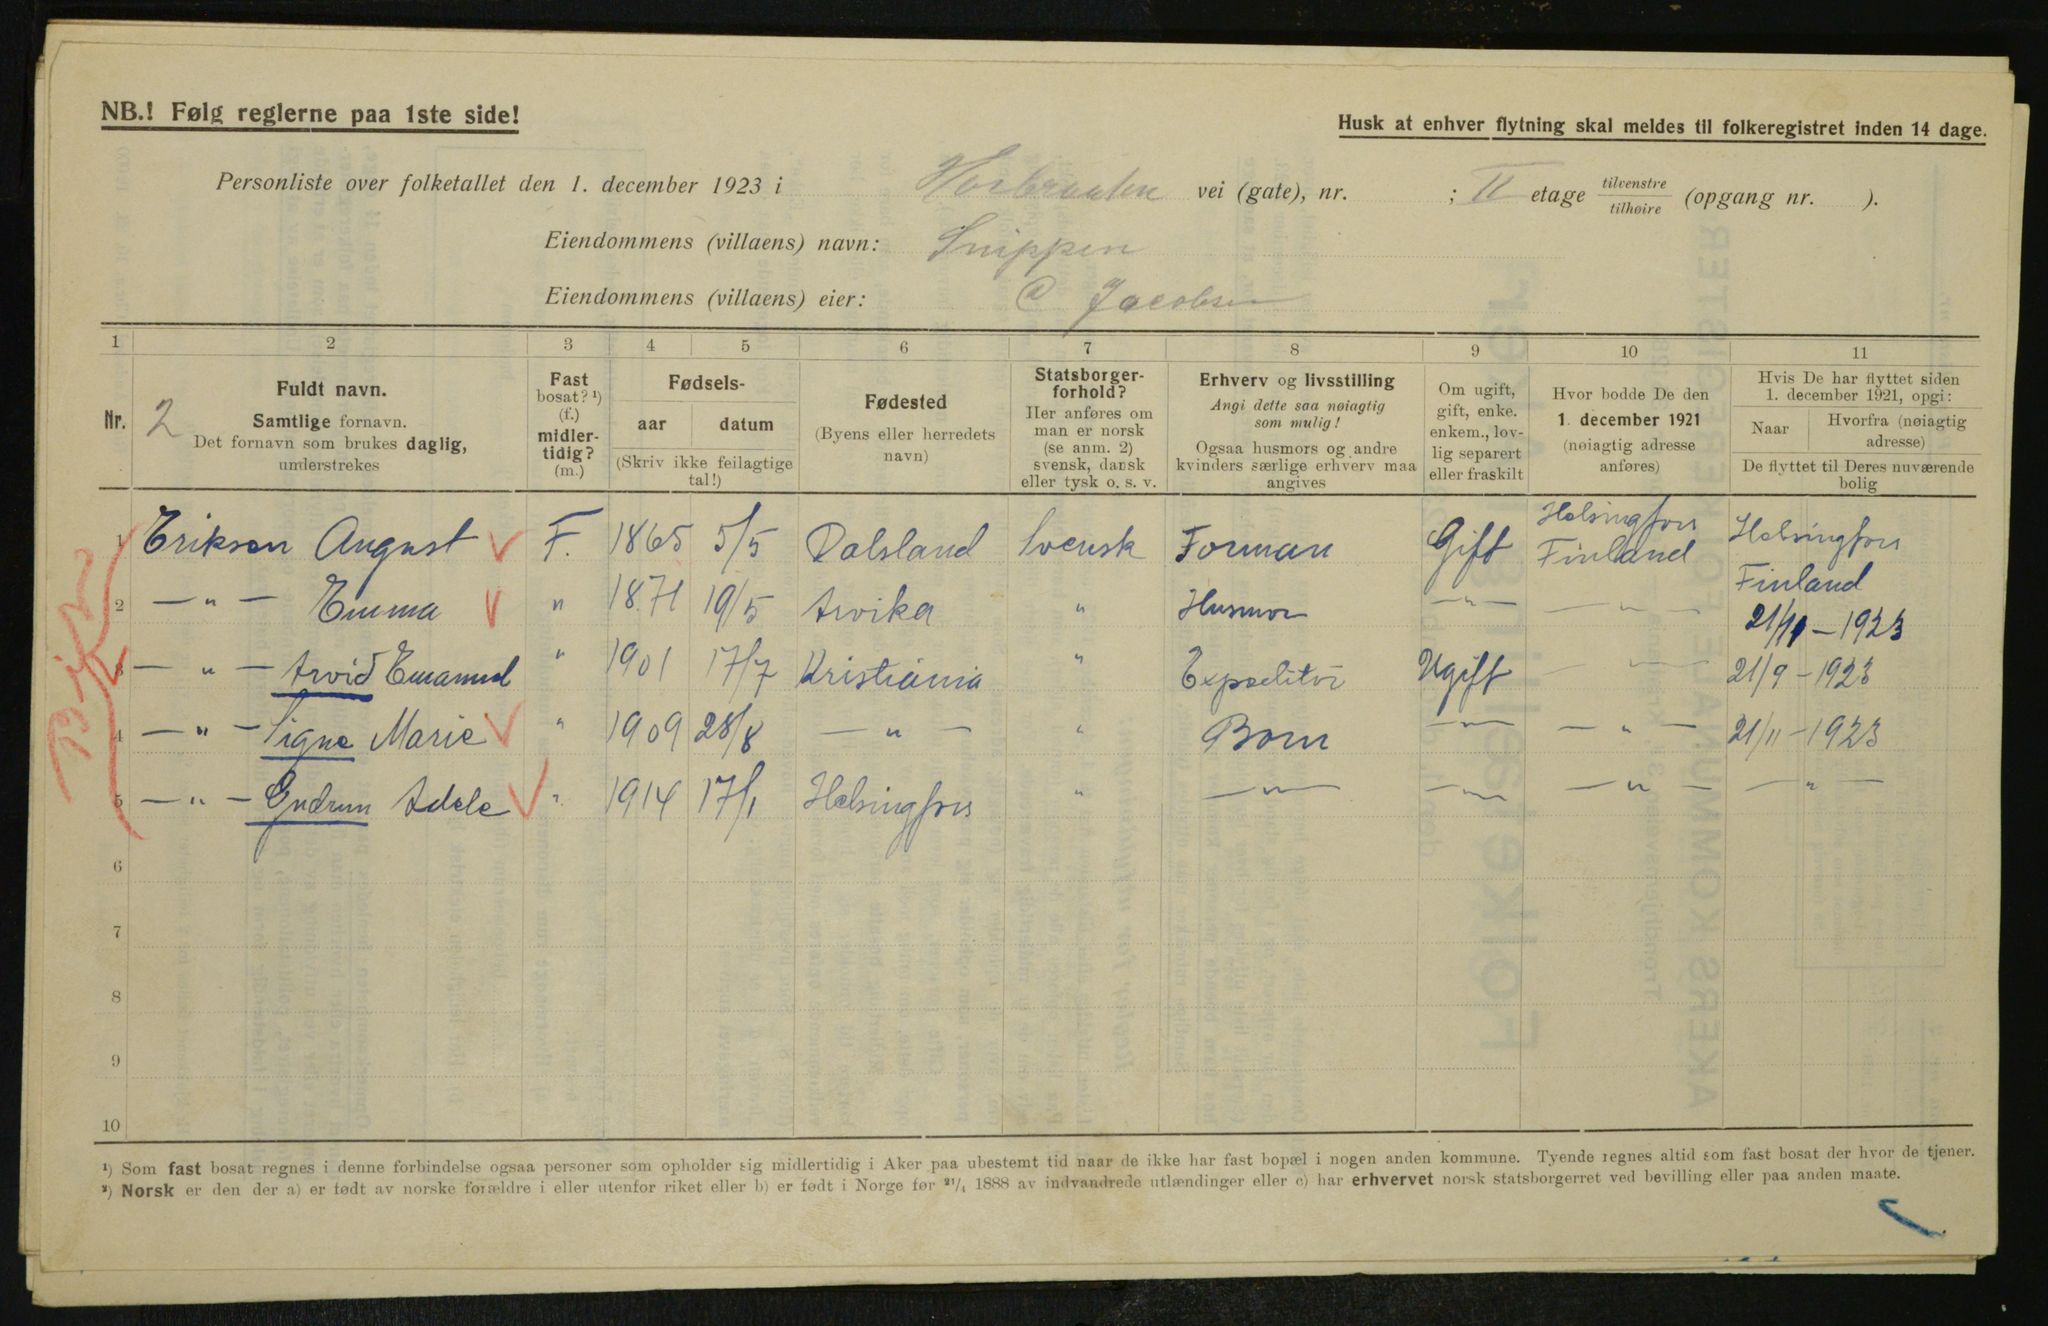 NB.! Følg reglerne paa 1ste side!
Husk at enhver flytning skal meldes til folkeregistret inden 14 dage.
Personliste over folketallet den 1. december 1923 i Horbraaten vei (gate), nr. ; II etage tilvenstre tilhøire (opgang nr. ).
Eiendommens (villaens) navn: Snippen
Eiendommens (villaens) eier: Jacobsen
1 2 3 4 5 6 7 8 9 10 11
Nr.
2
Fuldt navn.
Samtlige fornavn.
Det fornavn som brukes daglig,
understrekes
Fast
bosat? ¹)
(f.)
midler-
tidig?
(m.)
Fødsels-
aar datum
(Skriv ikke feilagtige
tal!)
Fødested
(Byens eller herredets
navn)
Statsborger-
forhold?
Her anføres om
man er norsk
(se anm. 2)
svensk, dansk
eller tysk o. s. v.
Erhverv og livsstilling
Angi dette saa nøiagtig
som mulig!
Ogsaa husmors og andre
kvinders særlige erhverv maa
angives
Om ugift,
gift, enke.
enkem., lov-
lig separert
eller fraskilt
Hvor bodde De den
1. december 1921
(nøiagtig adresse
anføres)
Hvis De har flyttet siden
1. december 1921, opgi:
Naar Hvorfra (nøiagtig
adresse)
De flyttet til Deres nuværende
bolig
1 Erikson August F. 1865 5/5 Dalsland Svensk Forman Gift Helsingfors Finland Helsingfors Finland
2 — " — Emma " 1871 19/5 Arvika " Husmor — " — — " — 21/11 — 1923
3 — " — Arvid Emanuel " 1901 17/7 Kristiania " Expeditør Ugift — " — 21/9 — 1923
4 — " — Signe Marie " 1909 28/8 — " — " Barn — " — — " — 21/11 — 1923
5 — " — Gudrun Adele " 1914 17/1 Helsingfors " — " — — " — — " — — " —
6
7
8
9
10
¹) Som fast bosat regnes i denne forbindelse ogsaa personer som opholder sig midlertidig i Aker paa ubestemt tid naar de ikke har fast bopæl i nogen anden kommune. Tyende regnes altid som fast bosat der hvor de tjener.
²) Norsk er den der a) er født av norske forældre i eller utenfor riket eller b) er født i Norge før ²¹/₄ 1888 av indvandrede utlændinger eller c) har erhvervet norsk statsborgerret ved bevilling eller paa anden maate.